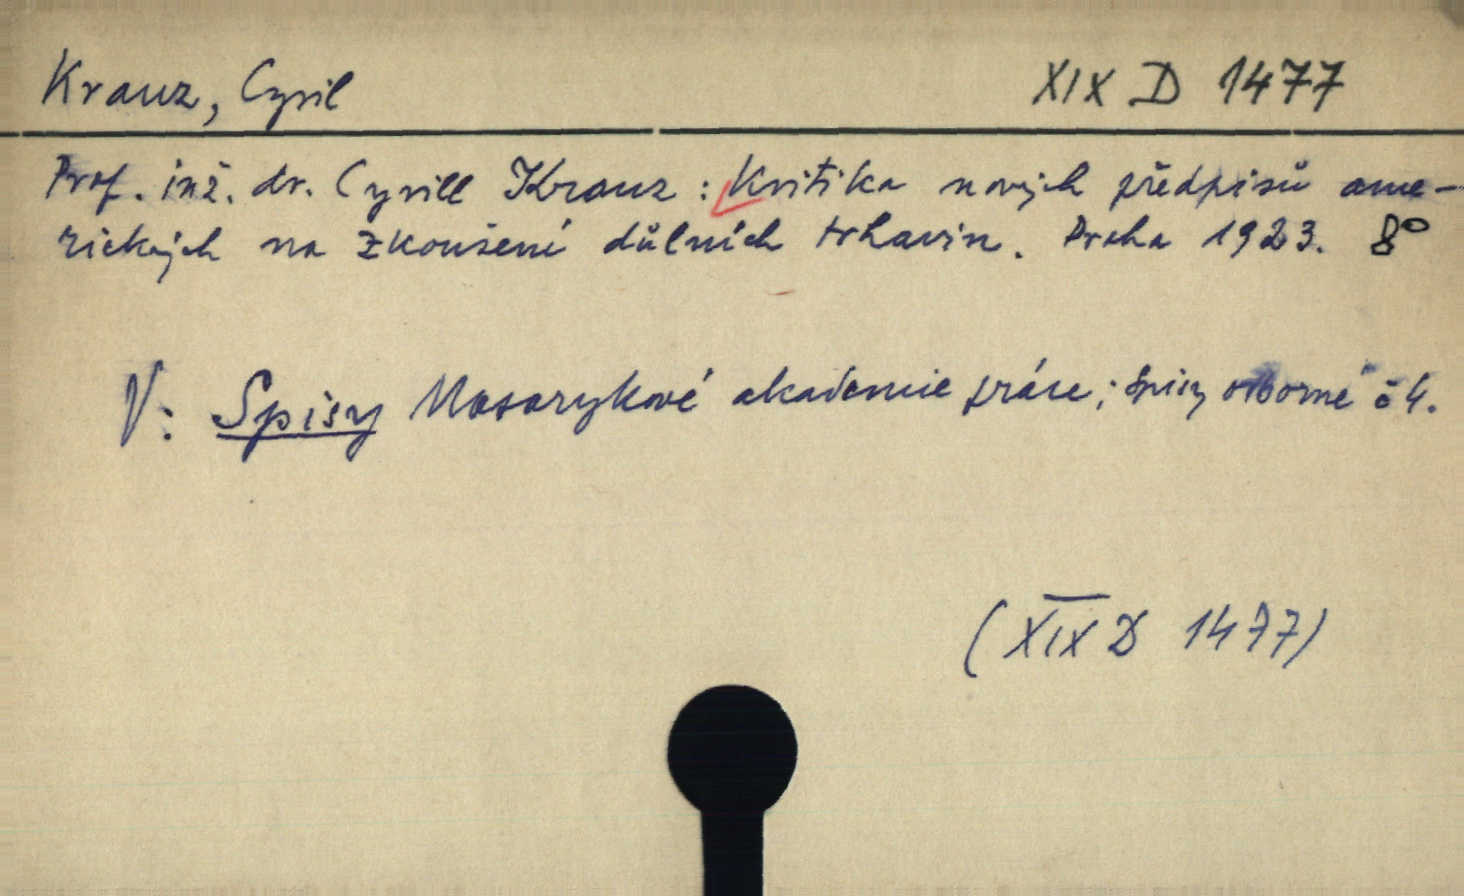 Krauz, Cyril XIX D 1477
Prof. inž. dr. Cyrill Krauz: Kritika nových předpisů ame-
rických na zkoušení důlních trhavin. Praha 1923. 8°
V: Spisy Masarykové akademie práce; Spisy odborné č 4.
(XIX D 1477)